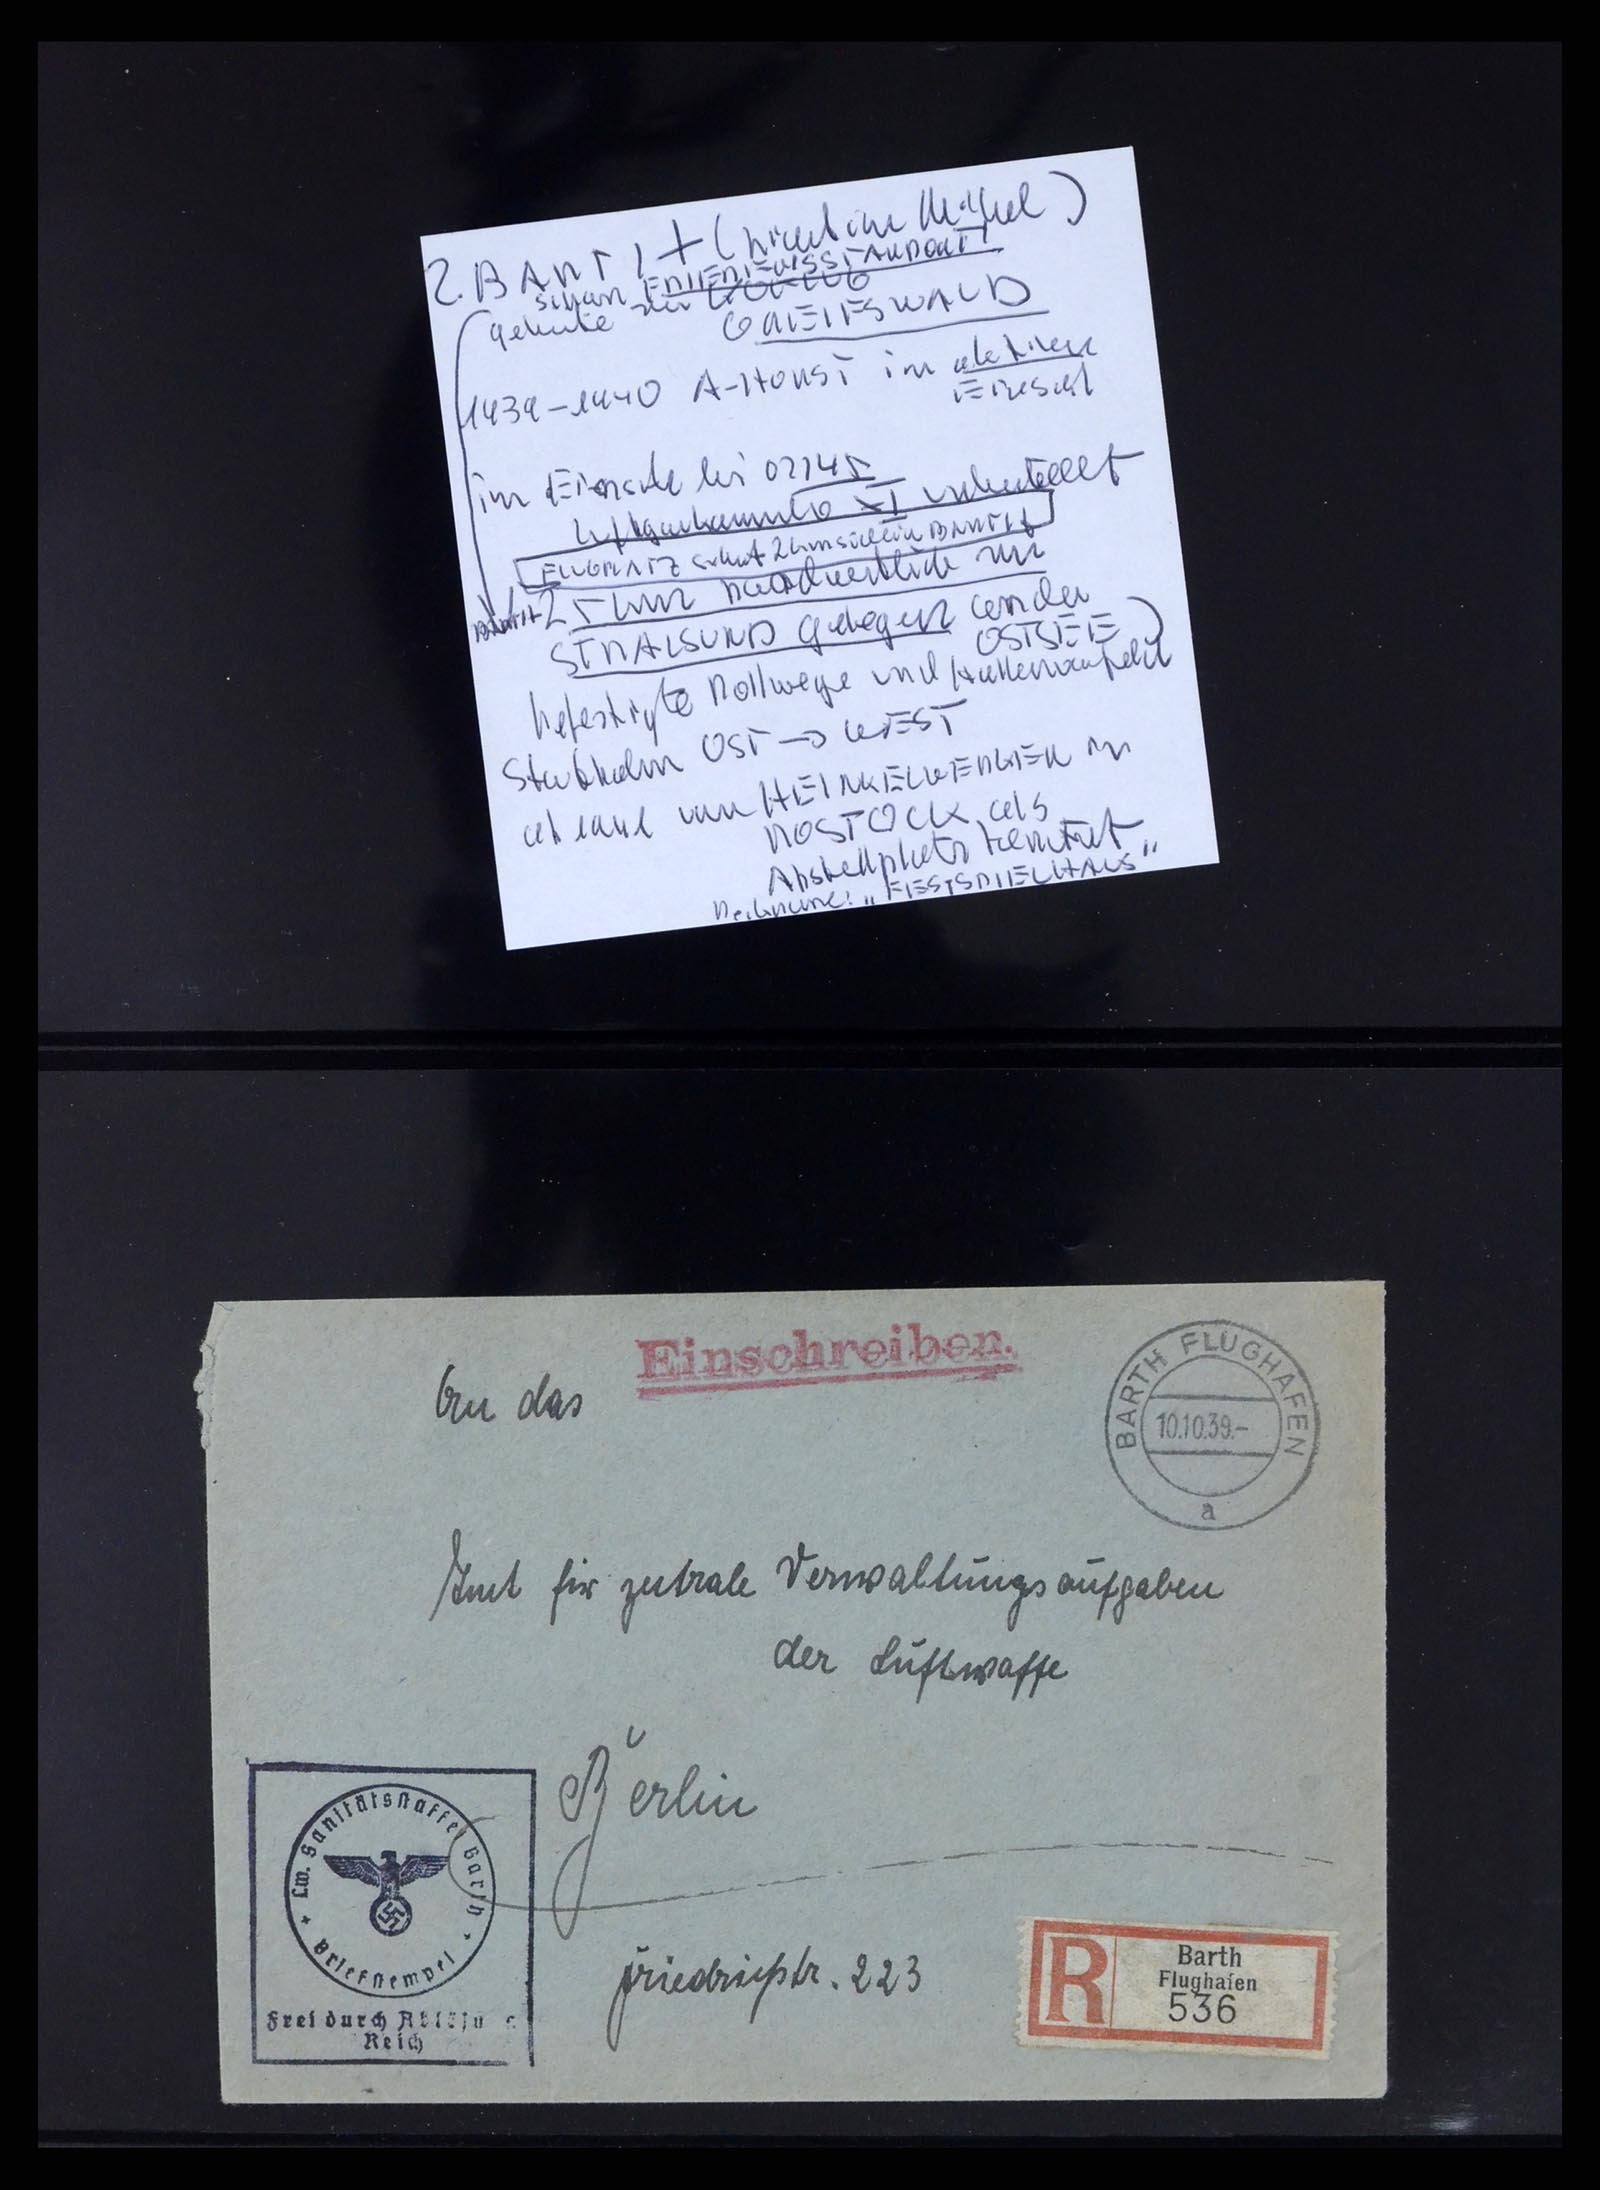 2. BARTH + (nicht im Michel)
schon FRIEDENSSTANDORT!
gehörte zur
GREIFSWALD
1939-1940 A-HORST im aktiven
EINSATZ
im Einsatz bis 02/45
Luftgaukommando XI unterstellt
FLUGPLATZ 2 km südlich BARTH
BARTH 25 km nordwestlich von
STRALSUND gelegen an der
OSTSEE)
befestigte Rollwege und Hallenvorfeld
Startbahn OST → WEST
auch von HEINKELWERKEN in
ROSTOCK als
Abstellplatz benutzt
Deckname: „FESTSPIELHAUS"
Einschreiben.
An das
BARTH FLUGHAFEN
10.10.39.-
a
Amt für zentrale Verwaltungsaufgaben
der Luftwaffe
Berlin
Friedrichstr. 223
Lw. Sanitätsstaffel Barth
Briefstempel
Frei durch Ablösung
Reich
R
Barth
Flughafen
536